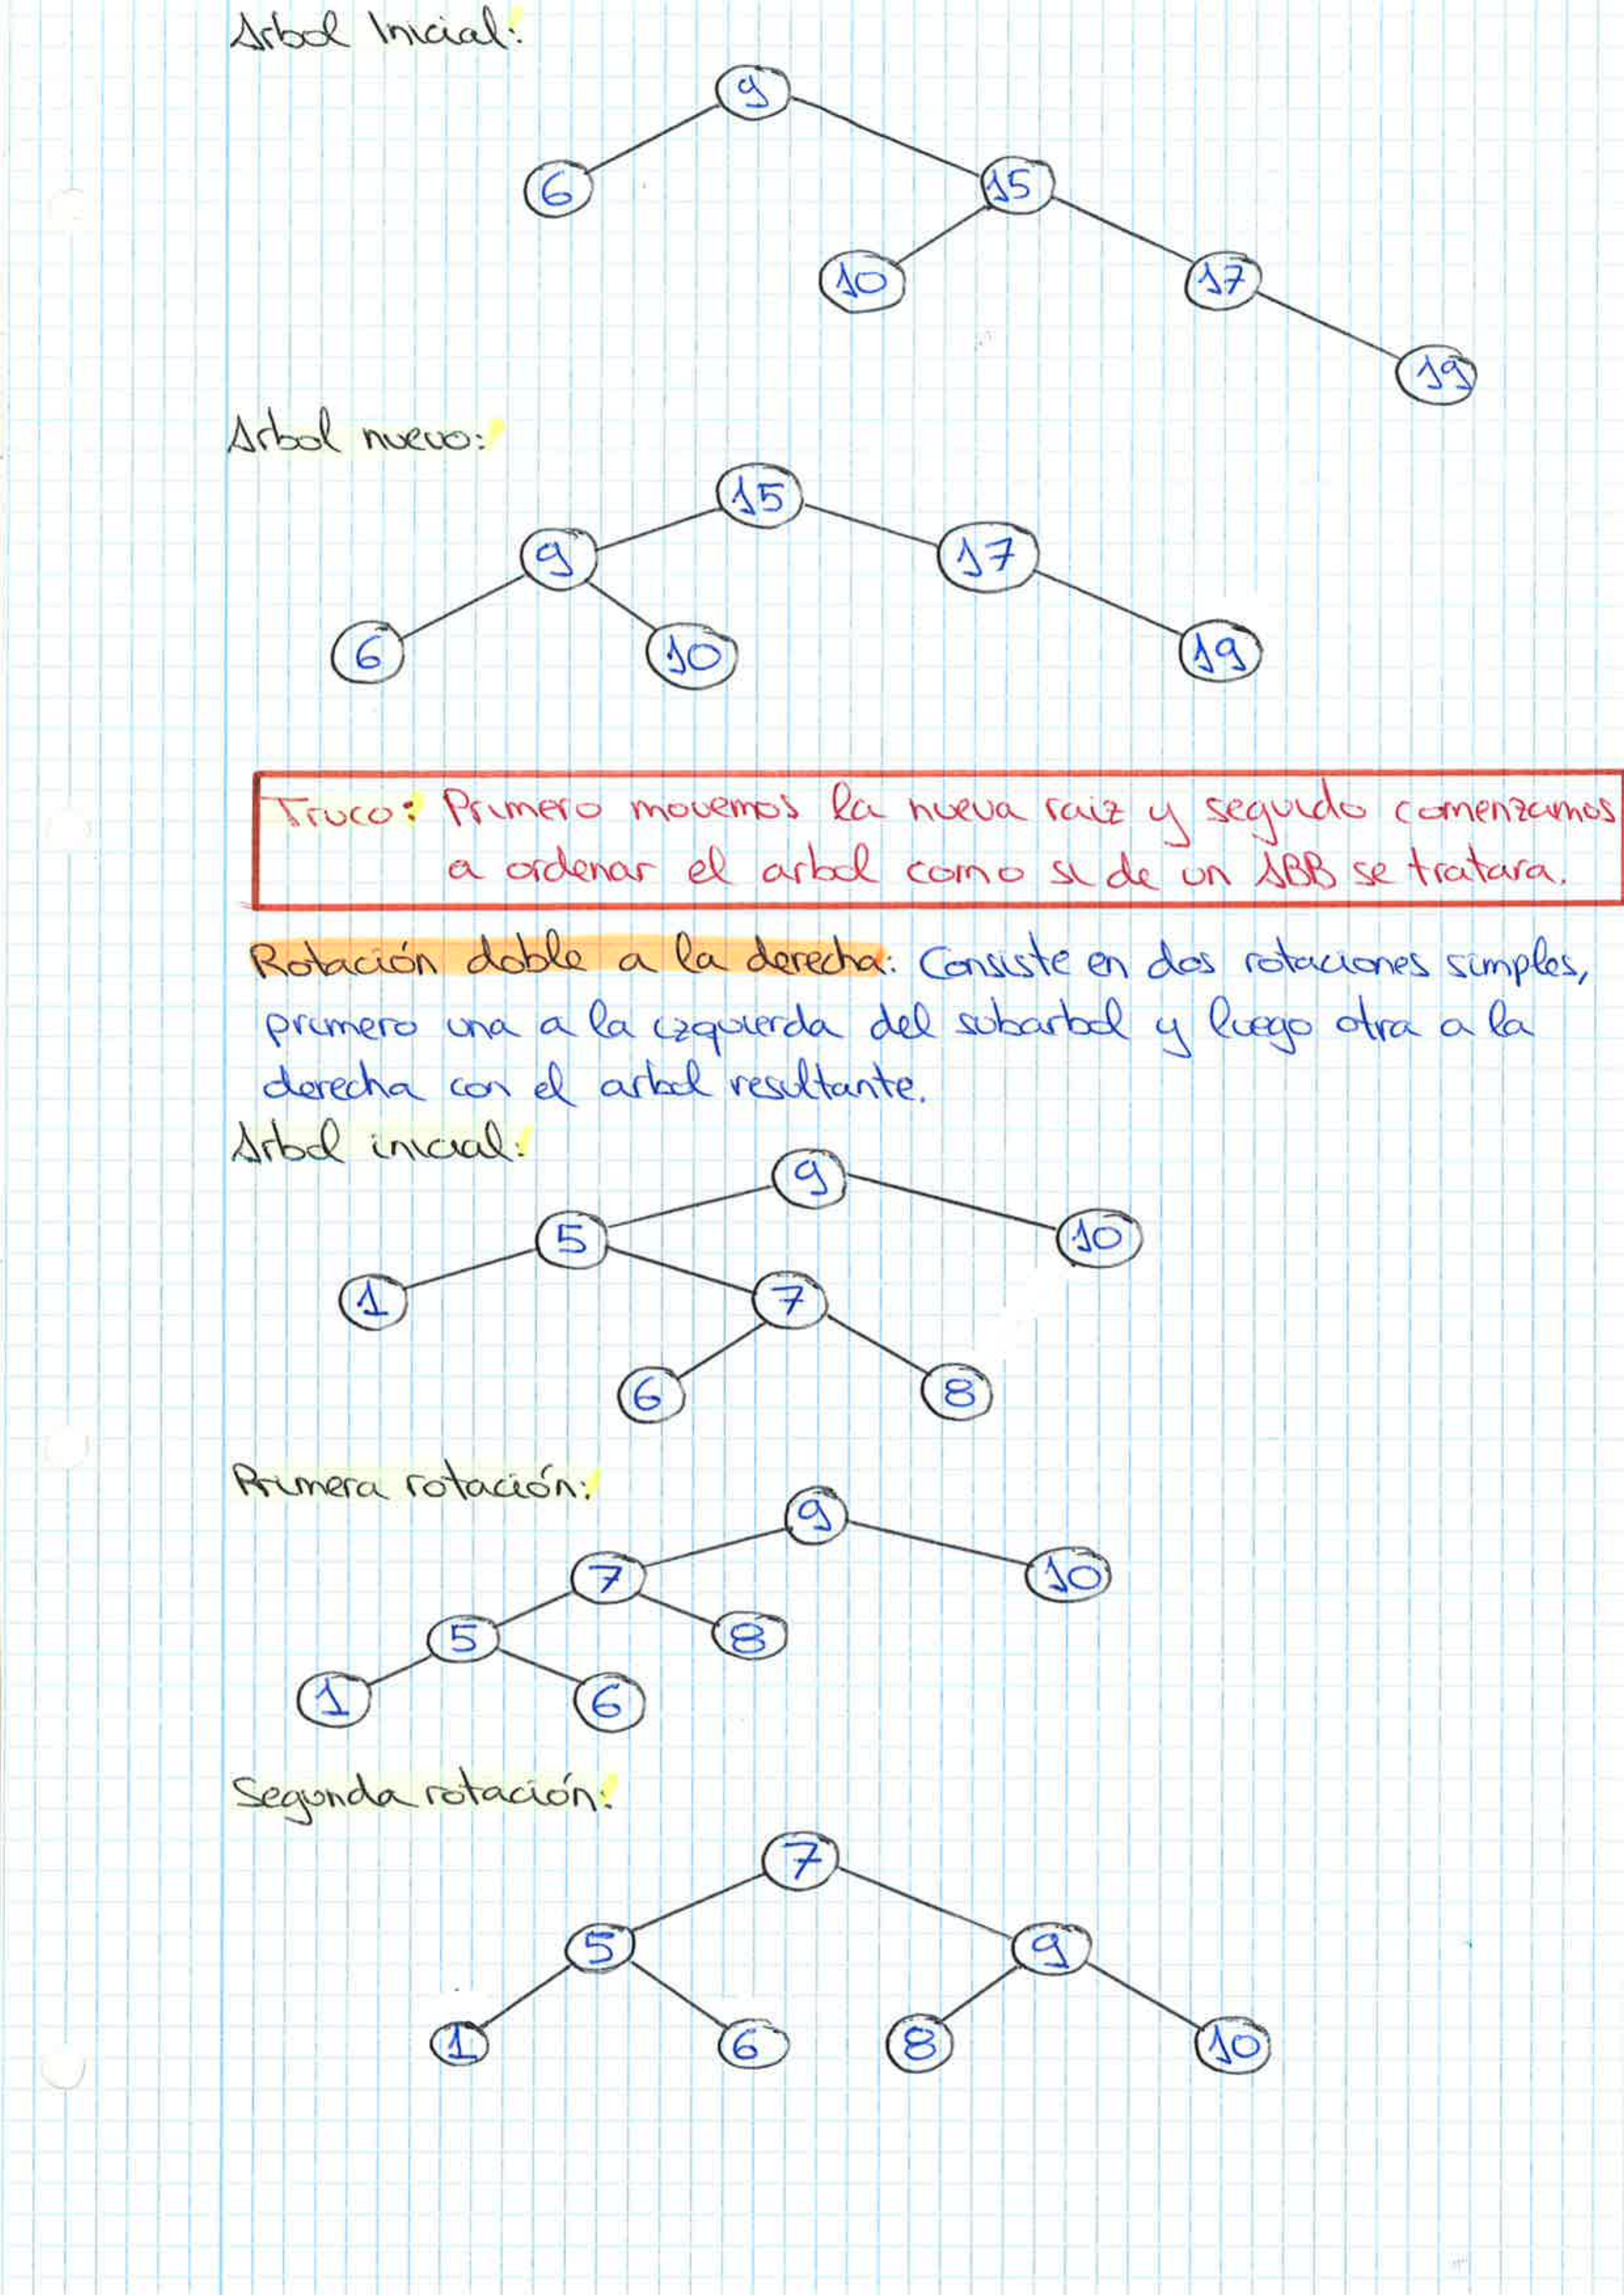 Arbol Inicial:
9
6 15
10 17
19
Arbol nuevo:
15
9 17
6 10 19
Truco: Primero movemos la nueva raiz y seguido comenzamos
a ordenar el arbol como si de un ABB se tratara.
Rotación doble a la derecha: Consiste en dos rotaciones simples,
primero una a la izquierda del subarbol y luego otra a la
derecha con el arbol resultante.
Arbol inicial:
9
5 10
1 7
6 8
Primera rotación:
9
7 10
5 8
1 6
Segunda rotación:
7
5 9
1 6 8 10